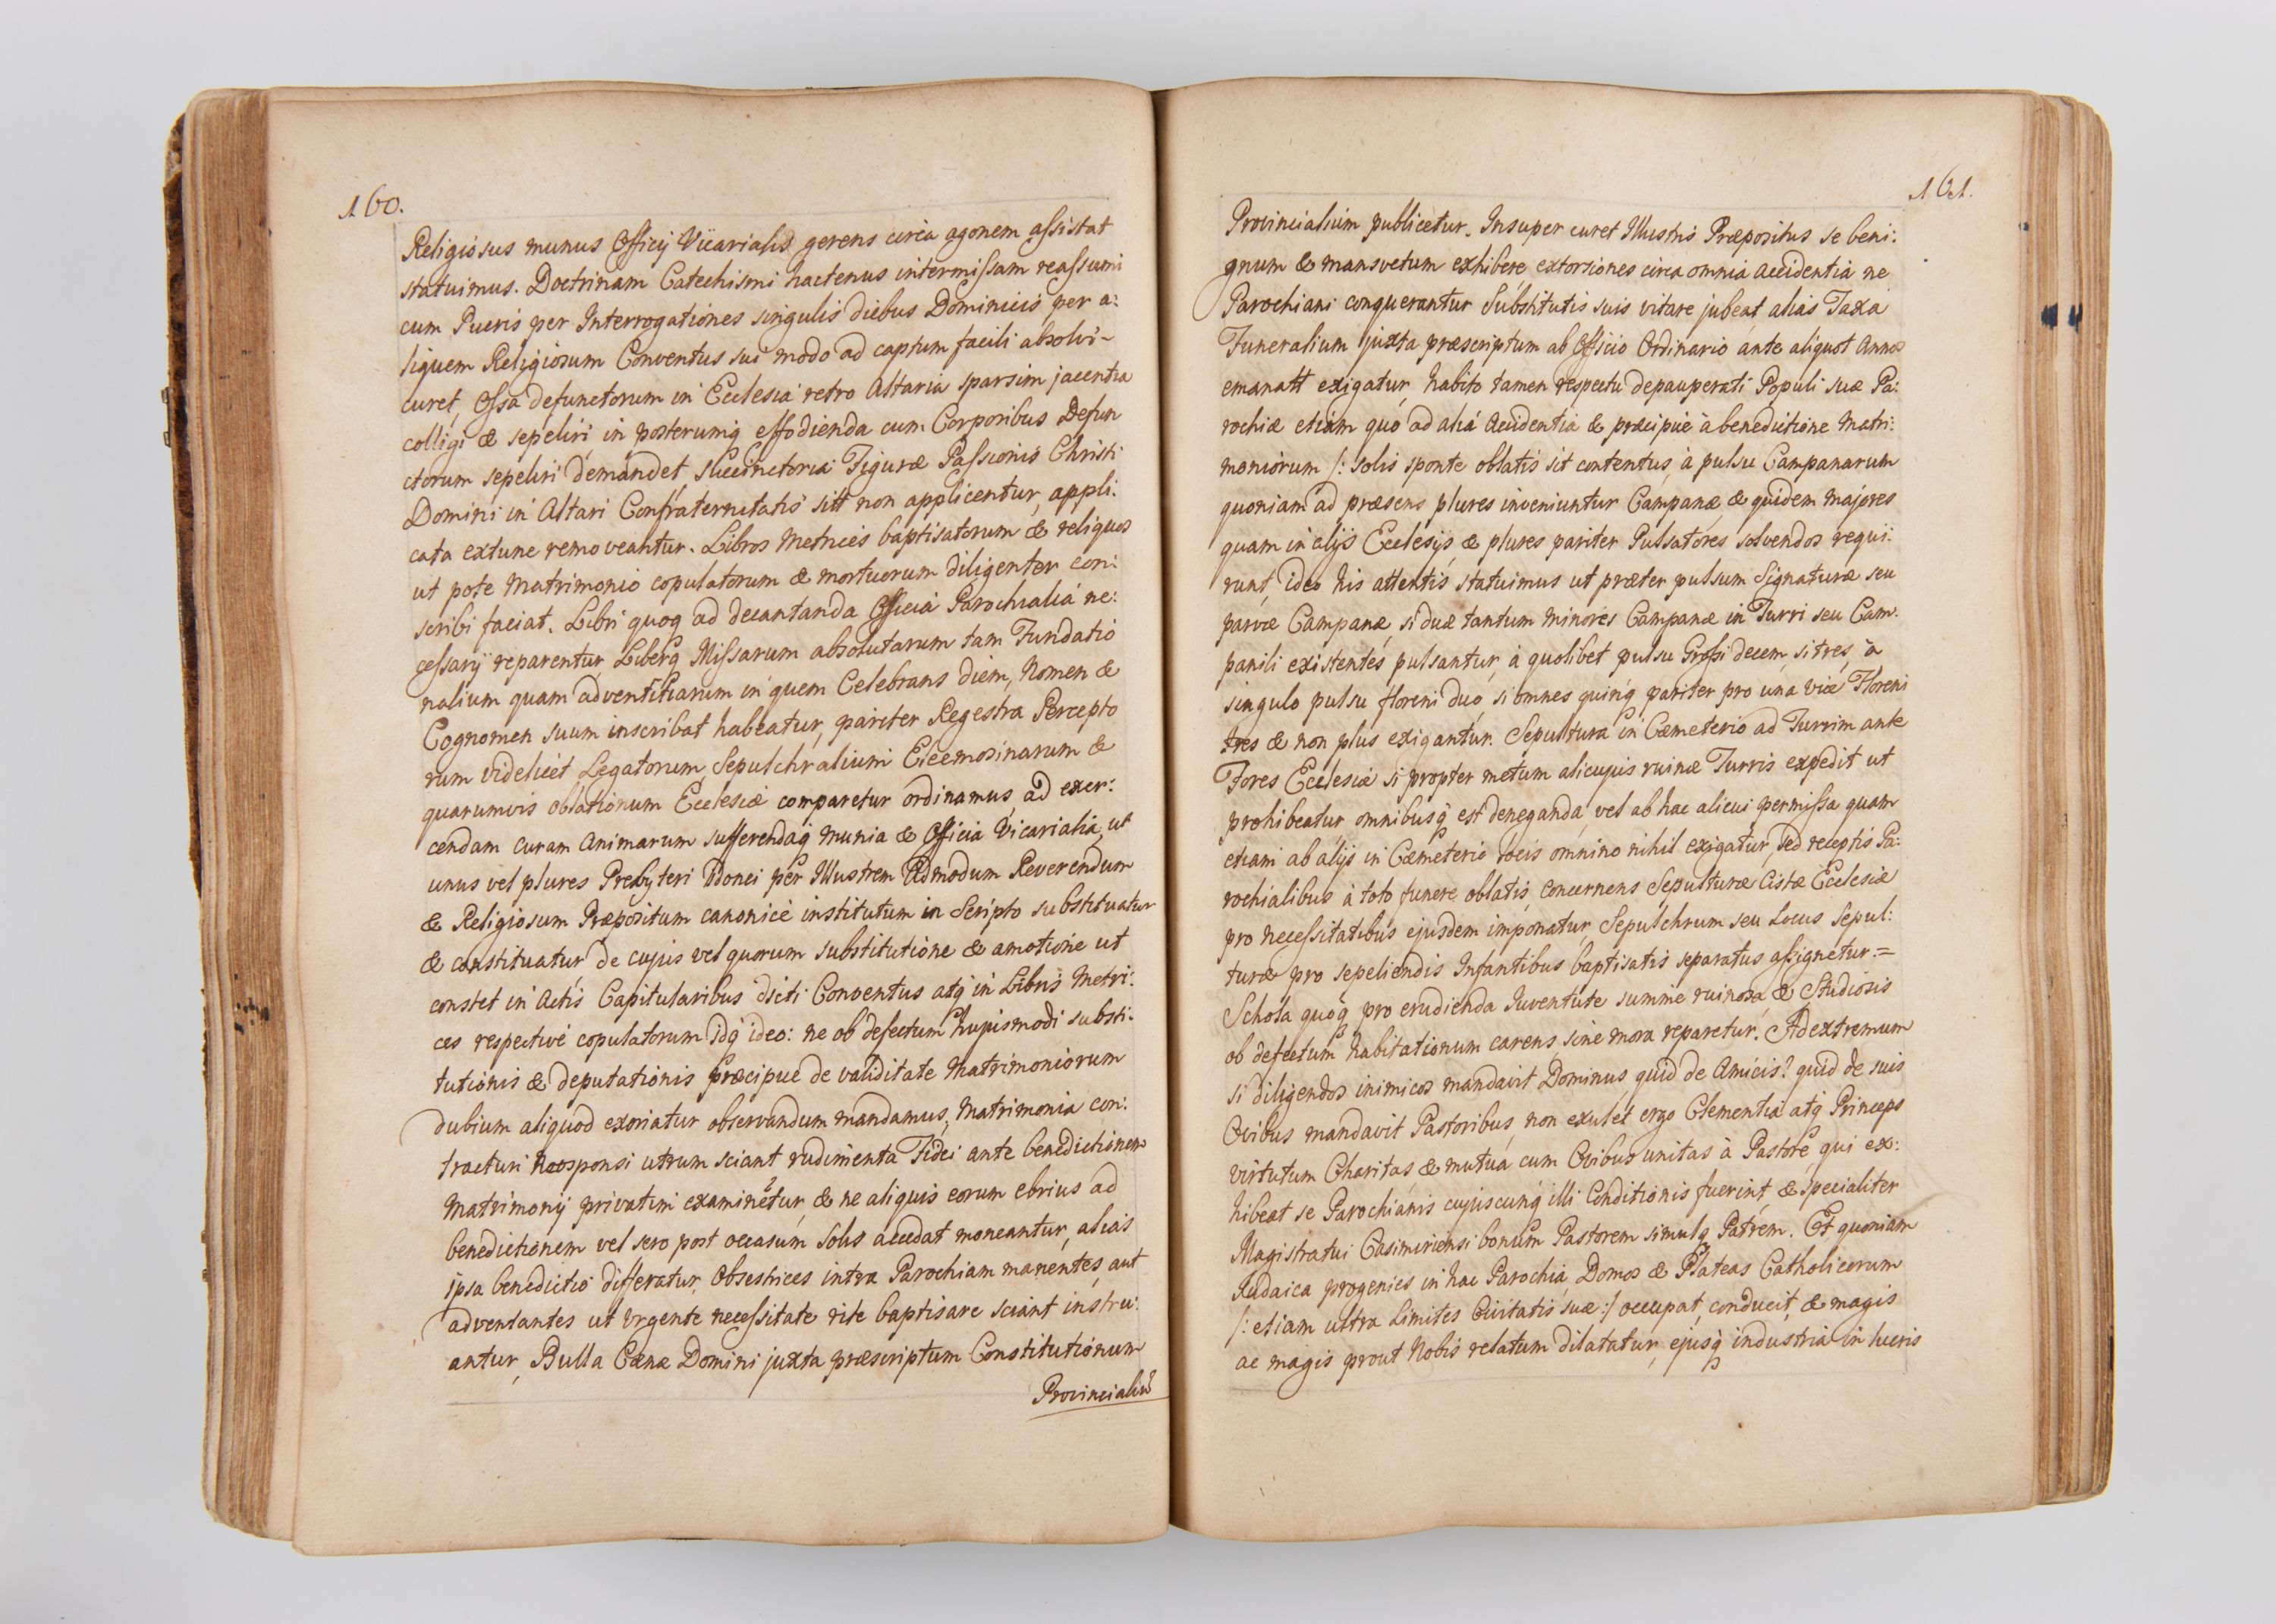 160.
Religiosus munus Officij Vicarialis gerens circa agonem assistat
statuimus. Doctrinam Catechismi hactenus intermissam reassumi
cum Pueris per Interrogationes singulis diebus Dominicis per a:
liquem Religiosum Conventus sui modo ad captum facili absolvi-
curet, Ossa defunctorum in Ecclesia retro Altaria sparsim jacentia
colligi & sepeliri in posterumq effodienda cum Corporibus Defun
ctorum sepeliri demandet, succinctoria Figuræ Passionis Christi
Domini in Altari Confraternitatis sitt non applicentur, appli:
cata extunc removeantur. Libros Metrices baptisatorum & reliquos
ut pote Matrimonio copulatorum & mortuorum diligenter con:
scribi faciat. Libri quoq ad decantanda Officia Parochialia ne:
cessarij reparentur, Liberq Missarum absolutarum tam Fundatio
nalium quam adventitiarum in quem Celebrans diem, Nomen &
Cognomen suum inscribat habeatur, pariter Regestra Percepto
rum videlicet Legatorum, Sepulchralium Eleemosinarum &
quarumvis oblationum Ecclesiæ comparetur ordinamus, ad exer:
cendam curam Animarum sufferendaq munia & Officia Vicarialia, ut
unus vel plures Presbyteri Idonei per Illustrem Admodum Reverendum
& Religiosum Præpositum canonicè institutum in Scripto substituatur
& constituatur de cujus vel quorum substitutione & amotione ut
constet in Actis Capitularibus dicti Conventus atq in Libris Metri:
ces respectivè copulatorum idq ideo: ne ob defectum hujusmodi substi:
tutionis & deputationis præcipue de validitate Matrimoniorum
dubium aliquod exoriatur observandum mandamus, Matrimonia con:
tracturi Neosponsi utrum sciant rudimenta Fidei ante benedictionem
Matrimonij privatim examinetur, & ne aliquis eorum ebrius ad
benedictionem vel sero post occasum Solis accedat moneantur, alias
ipsa benedictio differatur, Obsestrices intra Parochiam manentes, aut
adventantes ut urgente necessitate rite baptisare sciant instru:
antur, Bulla Cænæ Domini juxta præscriptum Constitutionum
Provincialiu
161.
Provincialium publicetur. Insuper curet Illustris Præpositus se beni:
gnum & mansvetum exhibere extorsiones circa omnia accidentia ne
Parochiani conquerantur Substitutis suis vitare jubeat, alias Taxa
Funeralium juxta præscriptum ab Officio Ordinario ante aliquot Annos
emanatt exigatur, habito tamen respectu depauperati Populi suæ Pa:
rochiæ etiam quo ad alia Accidentia & præcipuè à benedictione Matri:
moniorum /: solis sponte oblatis sit contentus, à pulsu Campanarum
quoniam ad præsens plures inveniuntur Campanæ & quidem majores
quam in alijs Ecclesijs & plures pariter Pulsatores solvendos requi:
runt, ideo his attentis statuimus ut præter pulsum Signaturæ seu
parvæ Campanæ, si duæ tantum minores Campanæ in Turri seu Cam:
panili existentes pulsantur, à quolibet pulsu Grossi decem, si tres, à
singulo pulsu floreni duo, si omnes quinq pariter pro una vice Floreni
tres & non plus exigantur. Sepultura in Cæmeterio ad Turrim ante
Fores Ecclesiæ si propter metum alicujus ruinæ Turris expedit ut
prohibeatur omnibusq est deneganda, vel ab hac alicui permissa quam
etiam ab alijs in Cæmeterio locis omnino nihil exigatur, sed receptis Pa:
rochialibus à toto funere oblatis, concernens Sepulturæ Cistæ Ecclesiæ
pro necessitatibus ejusdem imponatur, Sepulchrum seu Locus Sepul:
turæ pro sepeliendis Infantibus baptisatis separatus assignetur:=
Schola quoq pro erudienda Iuventute summe ruinosa, & Studiosis
ob defectum habitationum carens sine mora reparetur. Ad extremum
si diligendos inimicos mandavit Dominus quid de Amicis? quid de suis
Ovibus mandavit Pastoribus, non exulet ergo Clementia atq Princeps
virtutum Charitas, & mutua cum Ovibus unitas à Pastore qui ex:
hibeat se Parochianis cujuscunq illi Conditionis fuerint, & specialiter
Magistratui Casimiriensi bonum Pastorem simulq Patrem. Et quoniam
Iudaica progenies in hac Parochia, Domos & Plateas Catholicorum
/: etiam ultra Limites Civitatis suæ :/ occupat, conducit, & magis
ac magis prout Nobis relatum dilatatur, ejusq industria in lucris